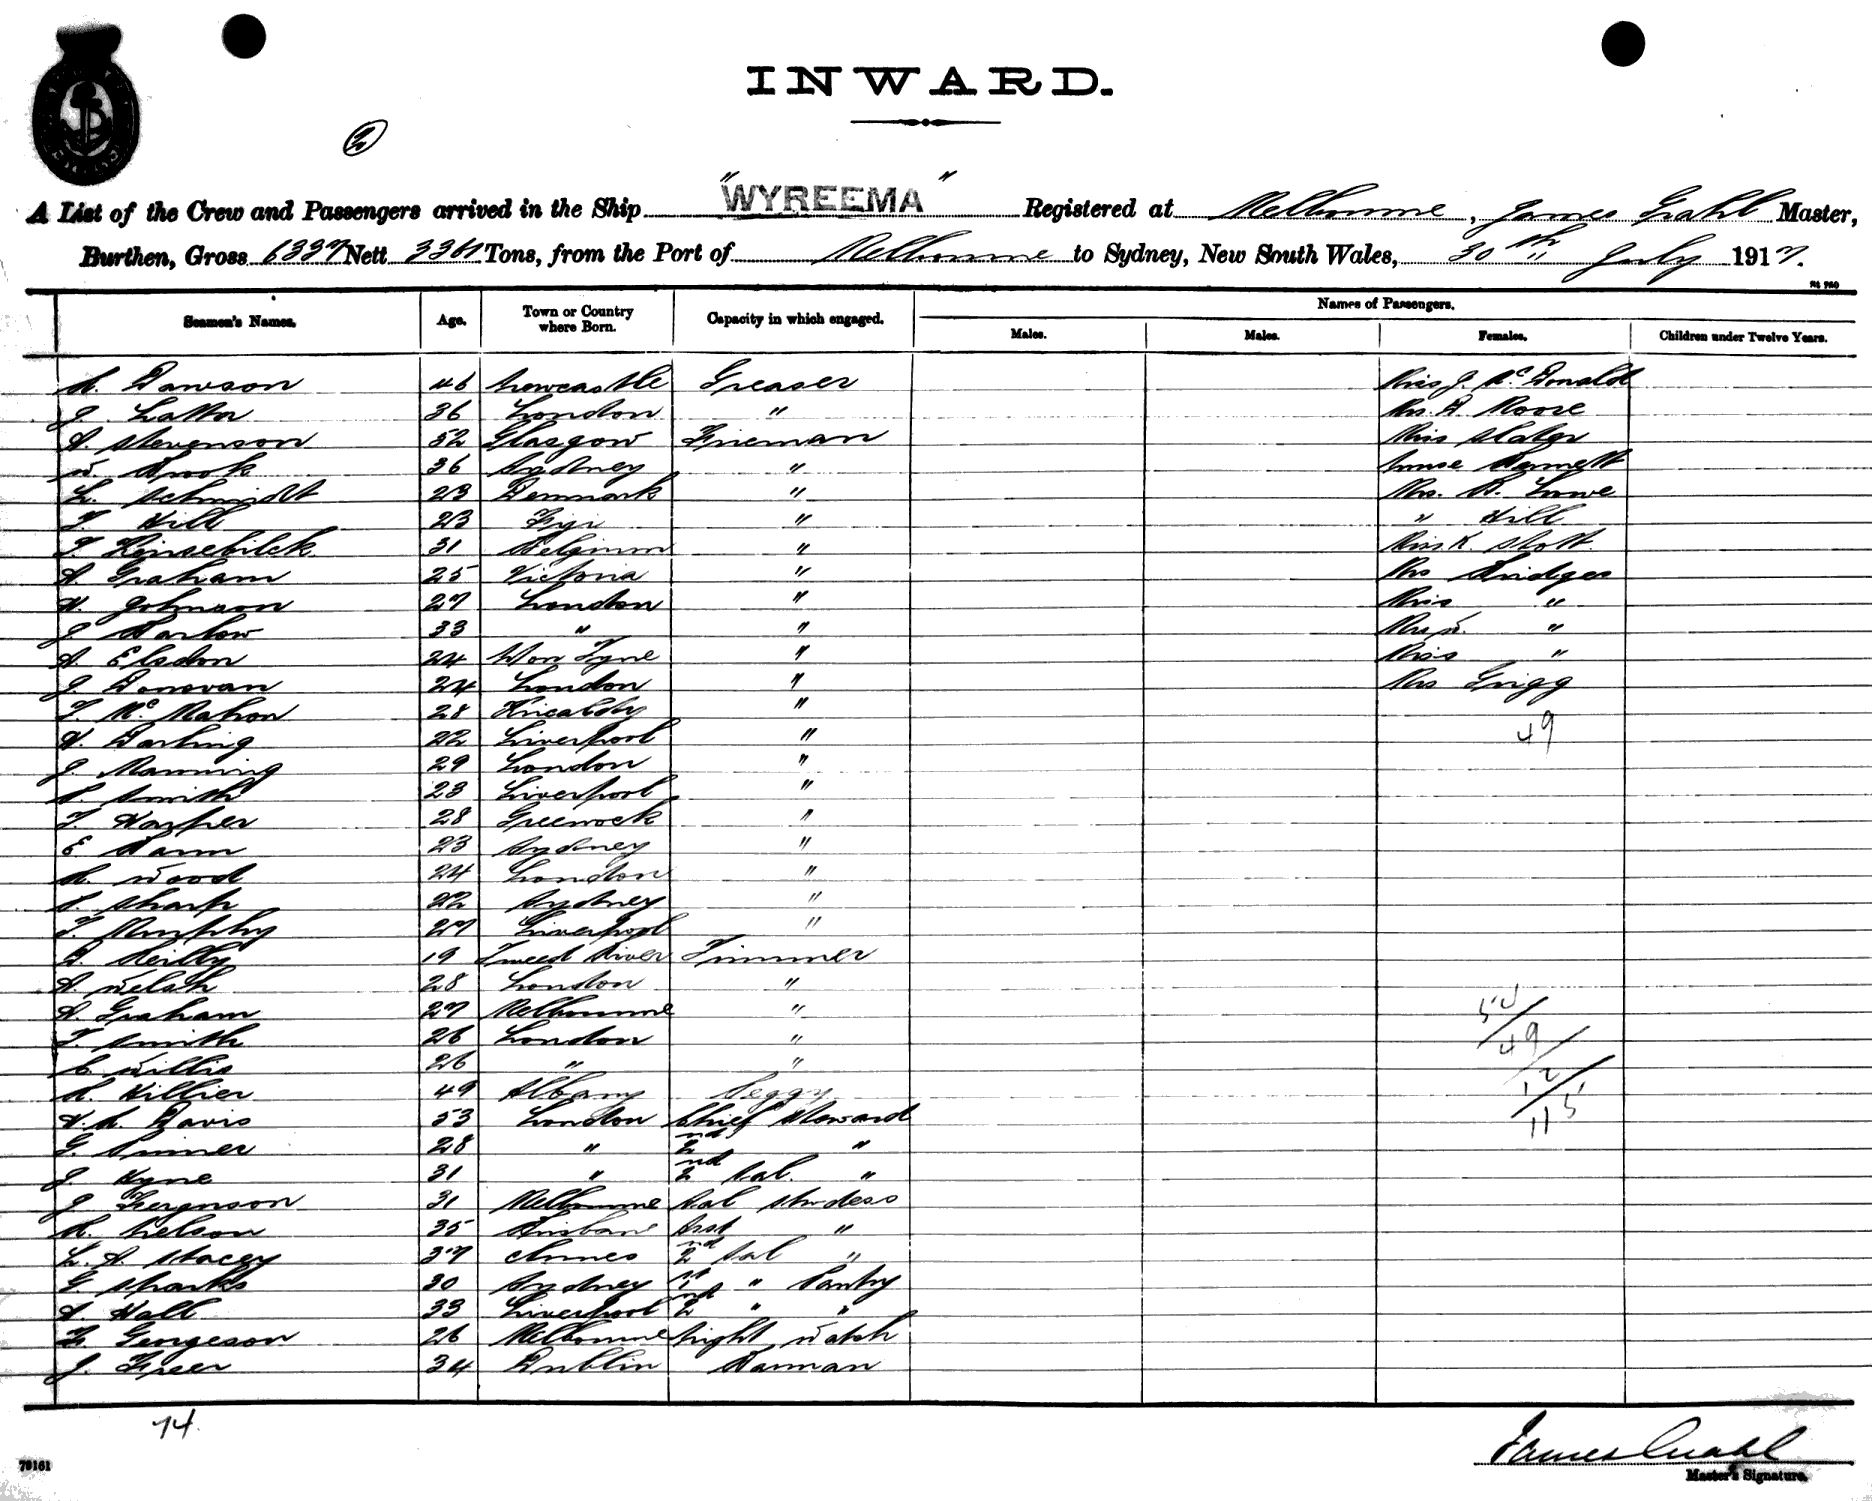 INWARD.
2
A List of the Crew and Passengers arrived in the Ship "WYREEMA" Registered at Melbourne, James Grahl Master,
Burthen, Gross 6337 Nett 3361 Tons, from the Port of Melbourne to Sydney, New South Wales, 30th July 1917.
Seamen's Names. Age. Town or Country where Born. Capacity in which engaged. Names of Passengers.
Males. Males. Females. Children under Twelve Years.
Dawson 46 Newcastle Greaser Miss J. McDonald
J. Latta 36 London " Mrs A Moore
A. Stevenson 52 Glasgow Fireman Miss Slater
W. Brook 36 Sydney " Nurse Bennett
L. Schmidt 23 Denmark " Mrs. B. Lowe
T. Hill 23 Fiji " " Hill
T. 31 Belgium " Miss K. Stott
A. Graham 25 Victoria " Mrs Bridges
H. Johnson 27 London " Miss "
J. Barlow 33 " " Mrs W. "
A. Elsdon 24 Won Tyne " Miss "
J. Donovan 24 London " Mrs Grigg
T. McMahon 28 Kircaldy "
H. Darling 22 Liverpool " 49
J. Manning 29 London "
Smith 23 Liverpool "
T. Harper 28 Greenock "
E 23 Sydney "
Wood 24 London "
Sharp 22 Sydney "
T. Murphy 27 Liverpool "
Reilly 19 Tweed River Trimmer
A. Welsh 28 London "
A. Graham 27 Melbourne " 54
T. Smith 26 London " 49
C. Willis 26 " " 12
Hillier 49 Albany Peggy 115
Davis 53 London Chief Steward
G. 28 " 2nd "
J. Hyne 31 " 2nd Sal. "
J. Ferguson 31 Melbourne Sal Stwdess
Nelson 35 Brisbane "
L. A. Stacey 37 2nd Sal "
G. Sparks 30 Sydney 1st " Pantry
A. Hall 33 Liverpool 2nd " "
F. Georgeson 26 Melbourne Night Watch
J. Freer 34 Dublin Barman
74.
79161
James Grahl
Master's Signature.